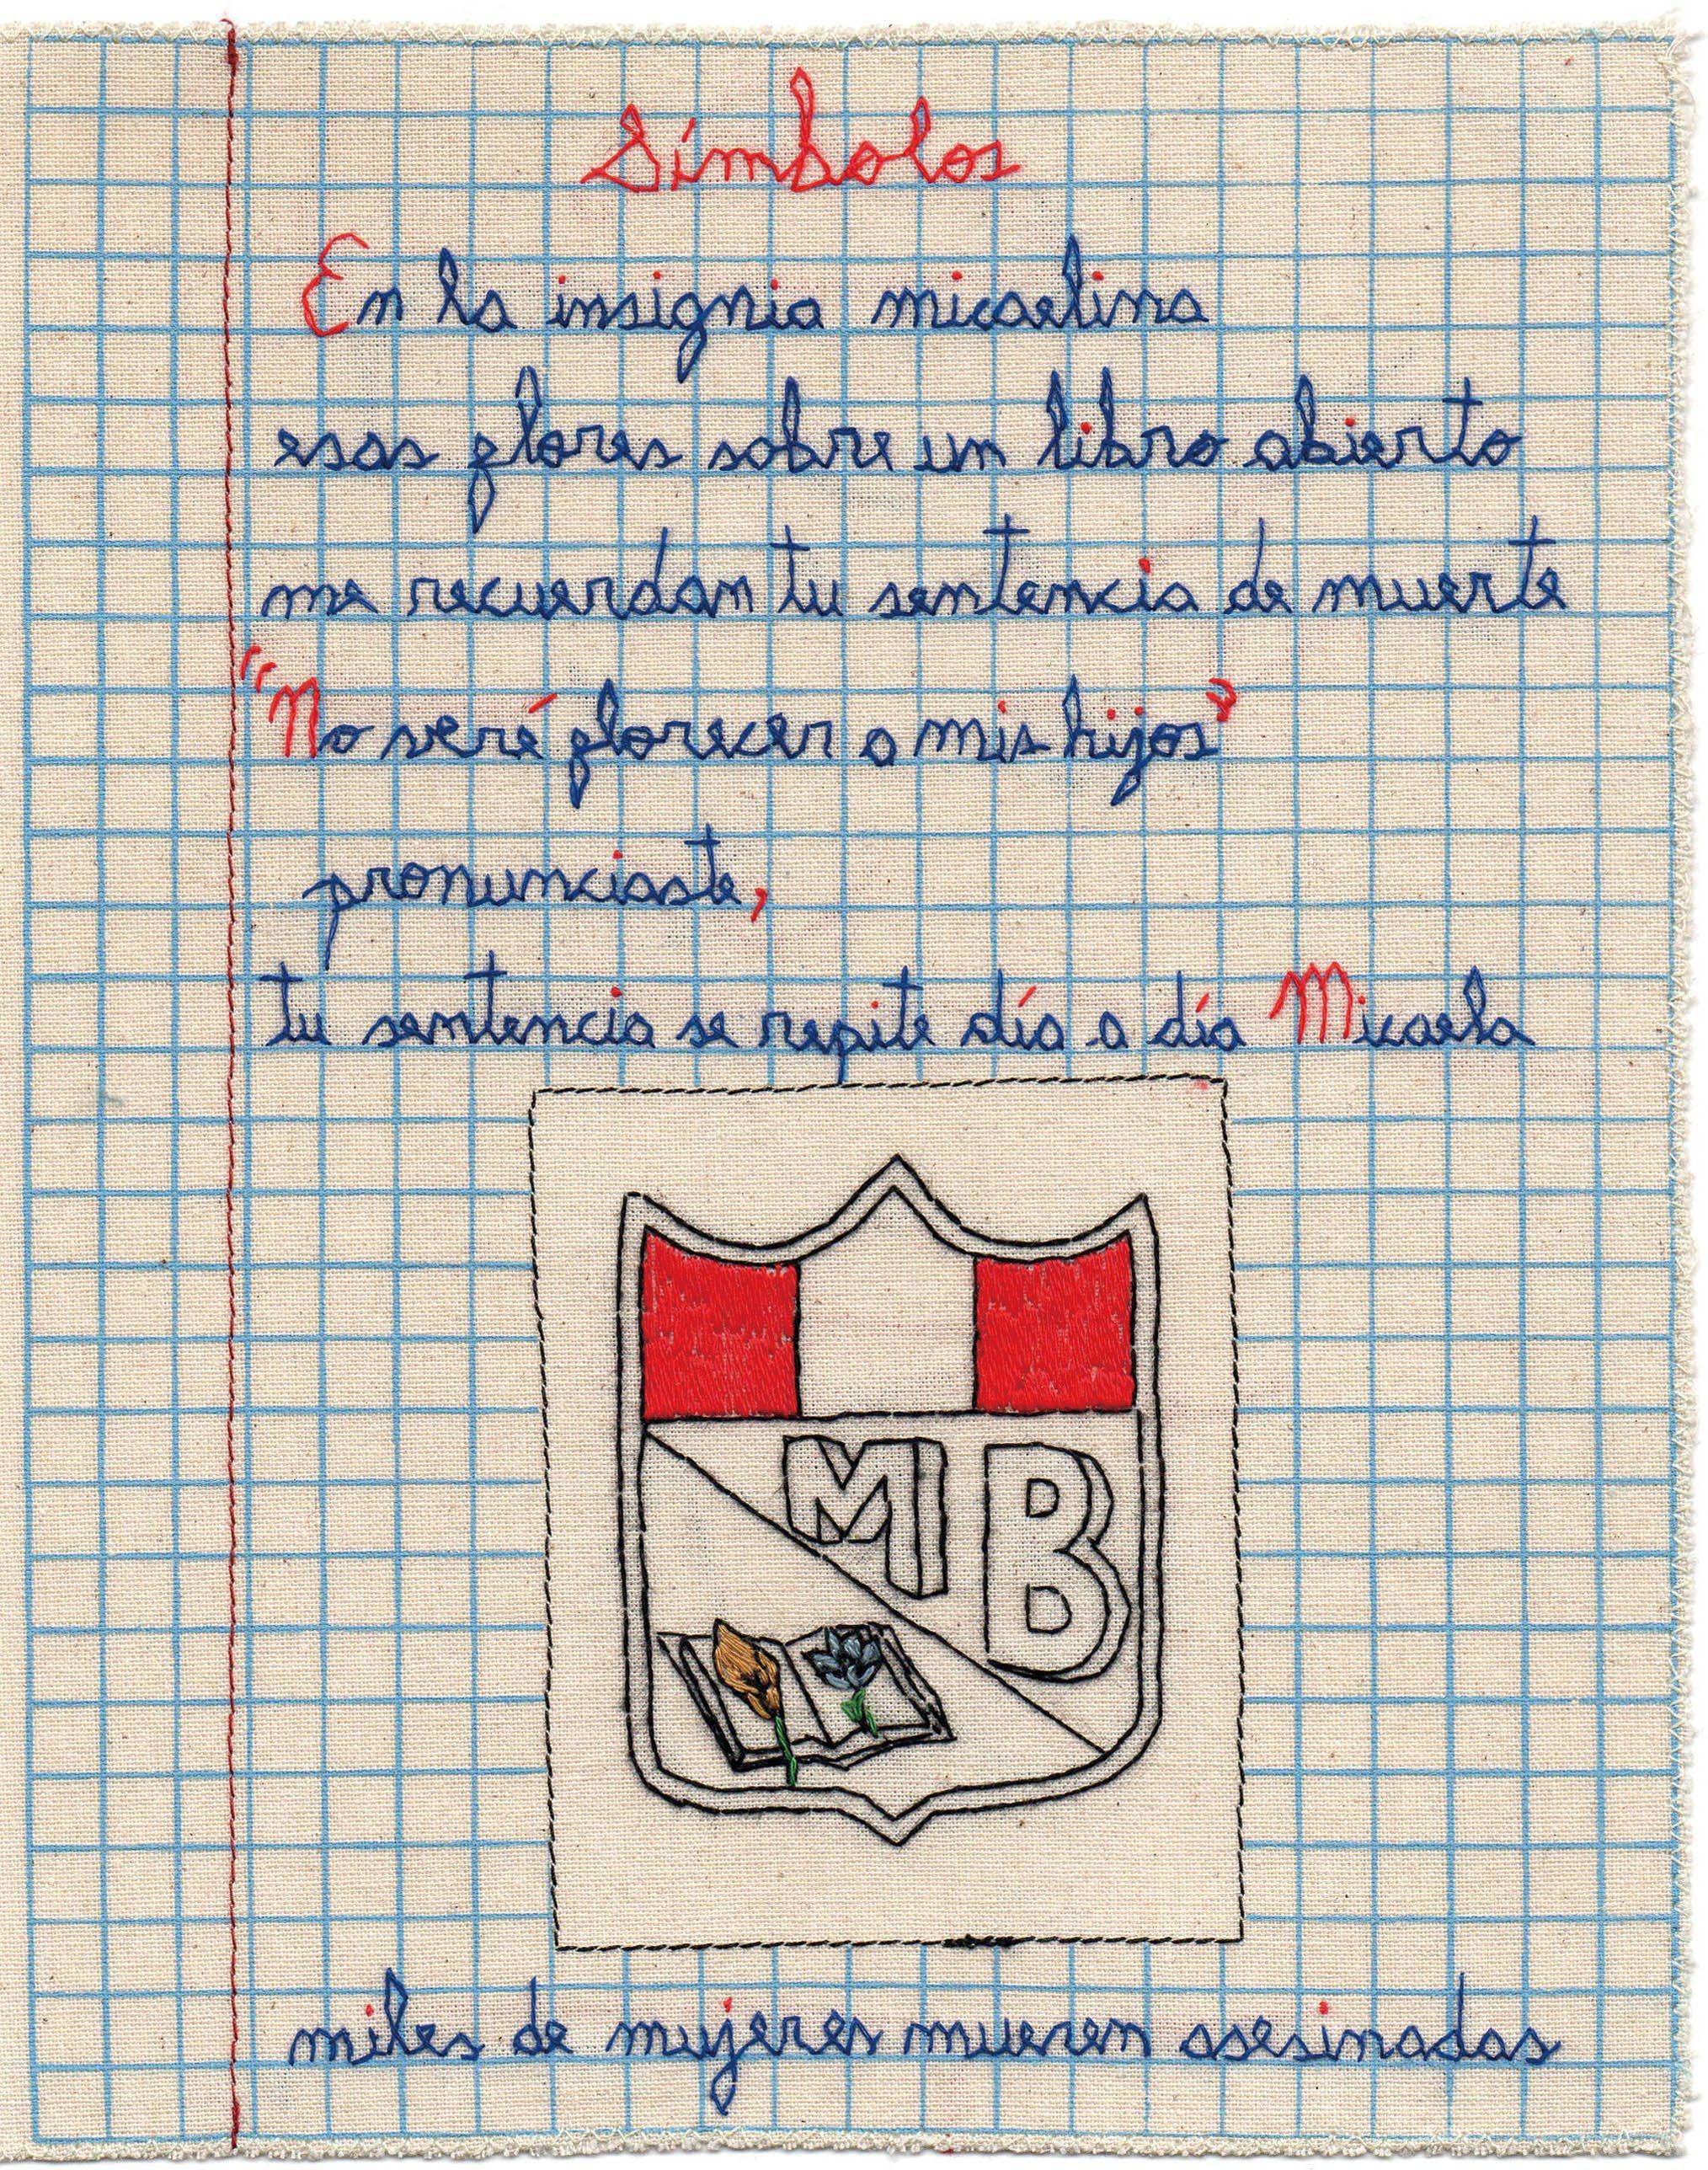 Símbolos
En la insignia micaelina
esas flores sobre un libro abierto
me recuerdan tu sentencia de muerte
"No veré florecer a mis hijos"
pronunciaste,
tu sentencia se repite día a día Micaela
MB
miles de mujeres mueren asesinadas